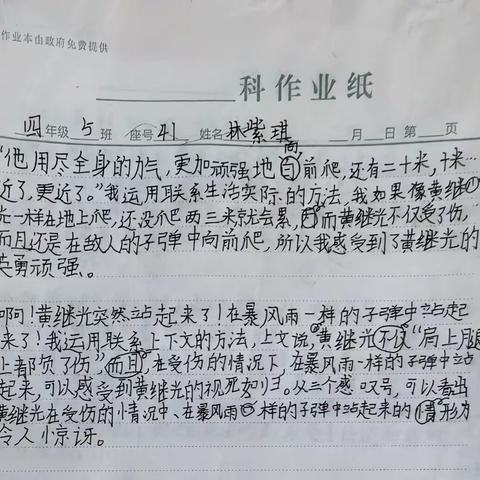 作业本由政府免费提供
科作业纸
四年级 5 班 座号 41 姓名 林紫琪 月 日 第 页
向
"他用尽全身的力气,更加顽强地 前爬,还有二十米,十米…
近了,更近了。"我运用联系生活实际的方法,我如果像黄继
光一样在地上爬,还没爬两三米就会累,而黄继光不仅受了伤,
而且还是在敌人的子弹中向前爬,所以我感受到了黄继光的
英勇顽强。
啊!黄继光突然站起来了!在暴风雨一样的子弹中站起
来了!我运用联系上下文的方法,上文说,黄继光不仅"肩上腿
上都负了伤"而且,在受伤的情况下,在暴风雨一样的子弹中站
起来,可以感受到黄继光的视死如归。从三个感叹号,可以看出
黄继光在受伤的情况中、在暴风雨一样的子弹中站起来的情形为
令人惊讶。